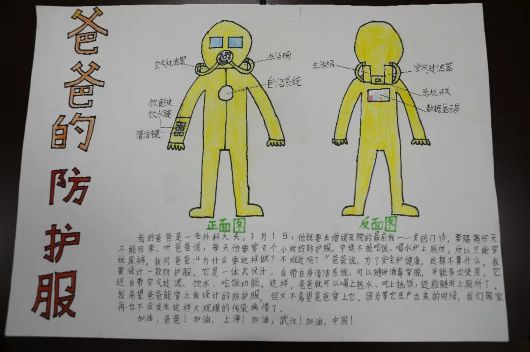 爸爸的防护服
空气过滤器
生活桶
自洁系统
饮食键
饮水键
清洁键
正面图
生活桶
空气过滤器
总机开关
数据显示屏
反面图
我的爸爸是一名外科大夫。2月1日，他就要去增援医院的最前线——发热门诊，要隔离好几天
不能回家。听爸爸说，每天他要穿8个小时的防护服，中途不能吃饭、喝水和上厕所，所以只能穿
纸尿裤。我问爸爸：“为什么要这样做？不难过吗？”爸爸说，为了安全和健康，这都不算什么。我
要设计一款防护服，它是一体式设计，自带自身清洁系统，可以随时消毒穿脱，并能多次使用。它
还自带空气过滤、饮水、吃饭功能。这样，爸爸就可以喝上热水、吃上热饭，还能随时上厕所了。
我希望爸爸能穿上我设计的防护服，但又不希望爸爸穿上它。因为等它生产出来的时候，我们国家
再也不会发生这样大规模的传染病情了。
加油，爸爸！加油，上海！加油，武汉！加油，中国！